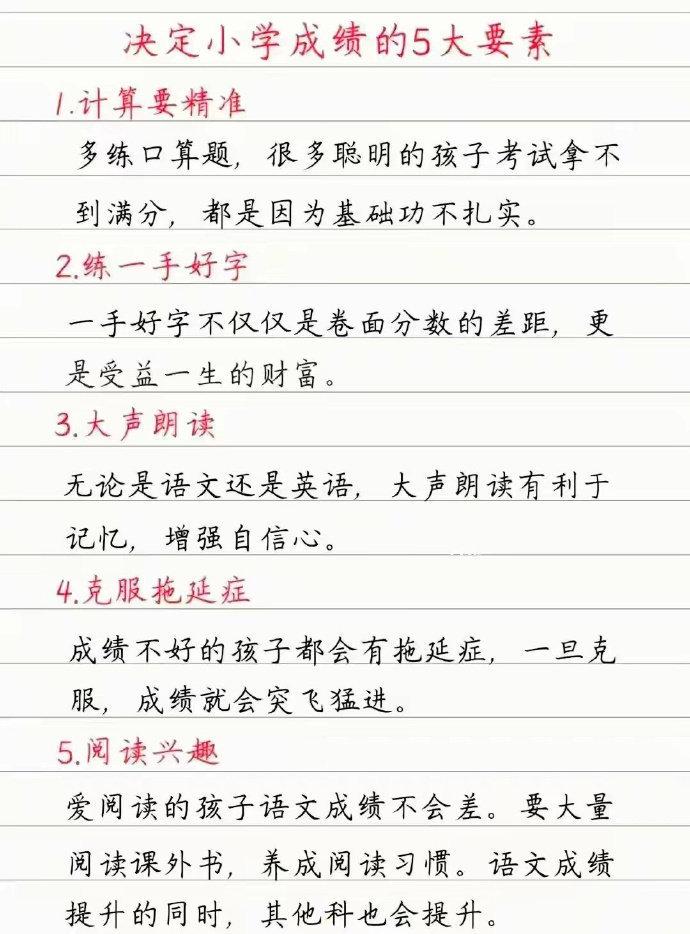 决定小学成绩的5大要素
1.计算要精准
多练口算题，很多聪明的孩子考试拿不
到满分，都是因为基础功不扎实。
2.练一手好字
一手好字不仅仅是卷面分数的差距，更
是受益一生的财富。
3.大声朗读
无论是语文还是英语，大声朗读有利于
记忆，增强自信心。
4.克服拖延症
成绩不好的孩子都会有拖延症，一旦克
服，成绩就会突飞猛进。
5.阅读兴趣
爱阅读的孩子语文成绩不会差。要大量
阅读课外书，养成阅读习惯。语文成绩
提升的同时，其他科也会提升。